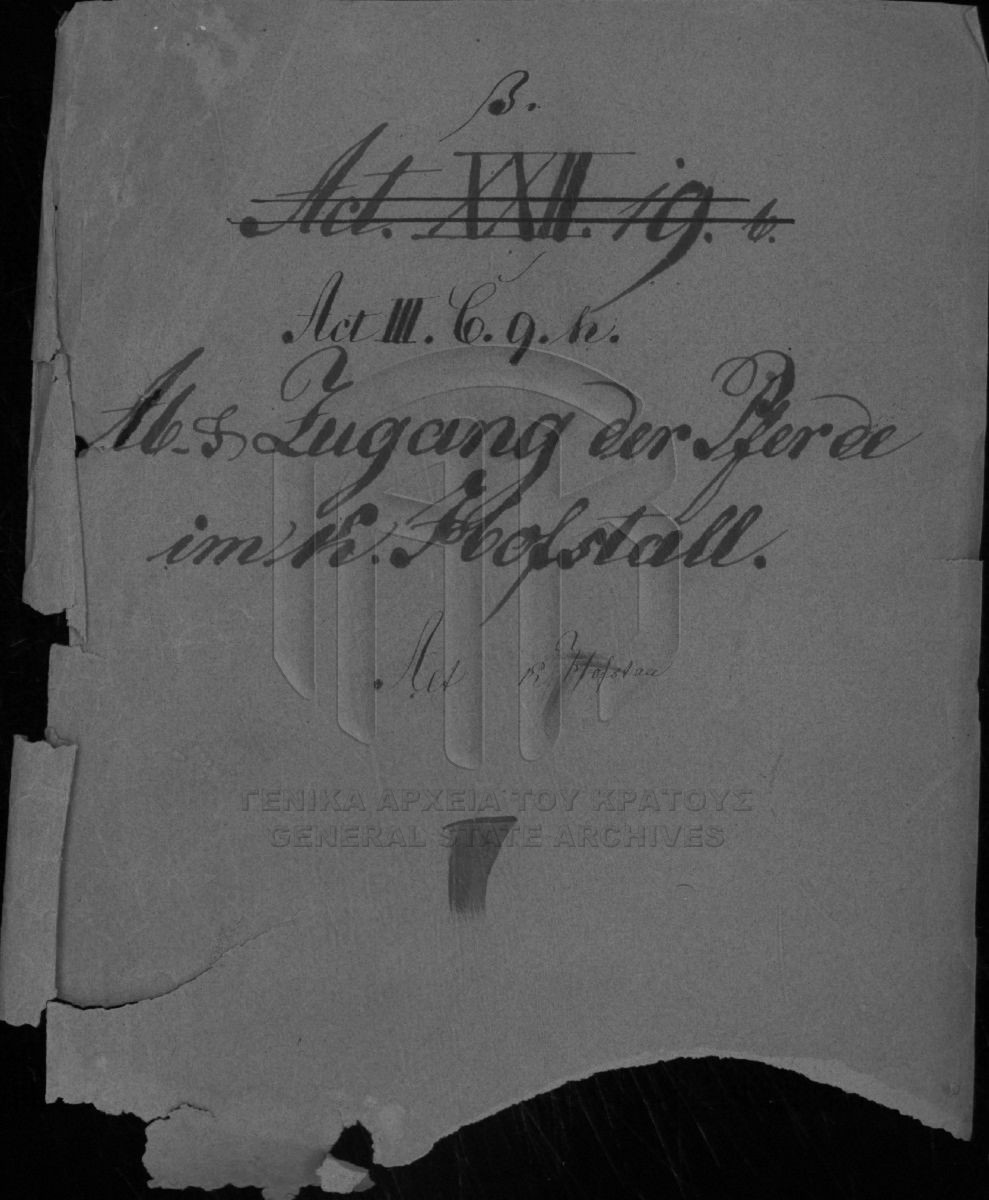 β.
Act. XXII. 19. b.
Act III. C. 9. h.
Ab- & Zugang der Pferde
im K. Hofstall.
Act K. Hofstall
ΓΕΝΙΚΑ ΑΡΧΕΙΑ ΤΟΥ ΚΡΑΤΟΥΣ
GENERAL STATE ARCHIVES